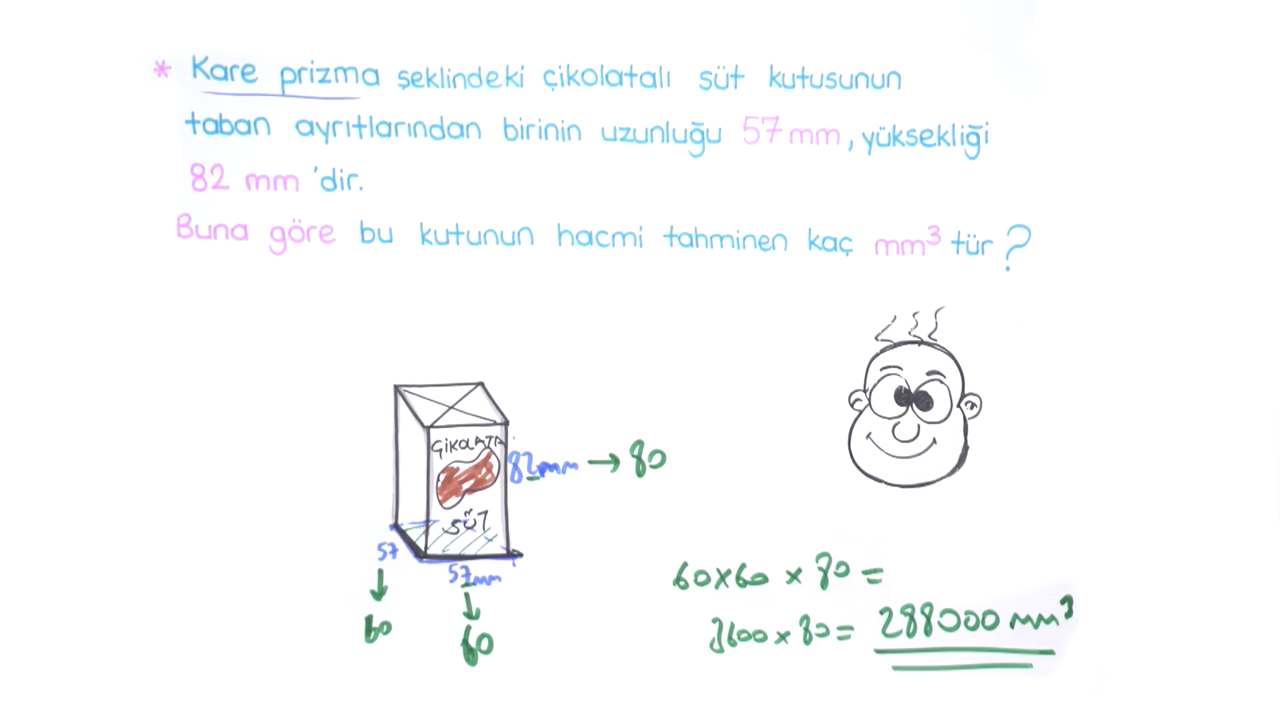 * Kare prizma şeklindeki çikolatalı süt kutusunun
taban ayrıtlarından birinin uzunluğu 57 mm, yüksekliği
82 mm 'dir.
Buna göre bu kutunun hacmi tahminen kaç mm³ tür ?
ÇİKOLATA
82mm → 80
SÜT
57
57mm
60
60
60x60 x 80 =
3600 x 80 = 288000 mm³